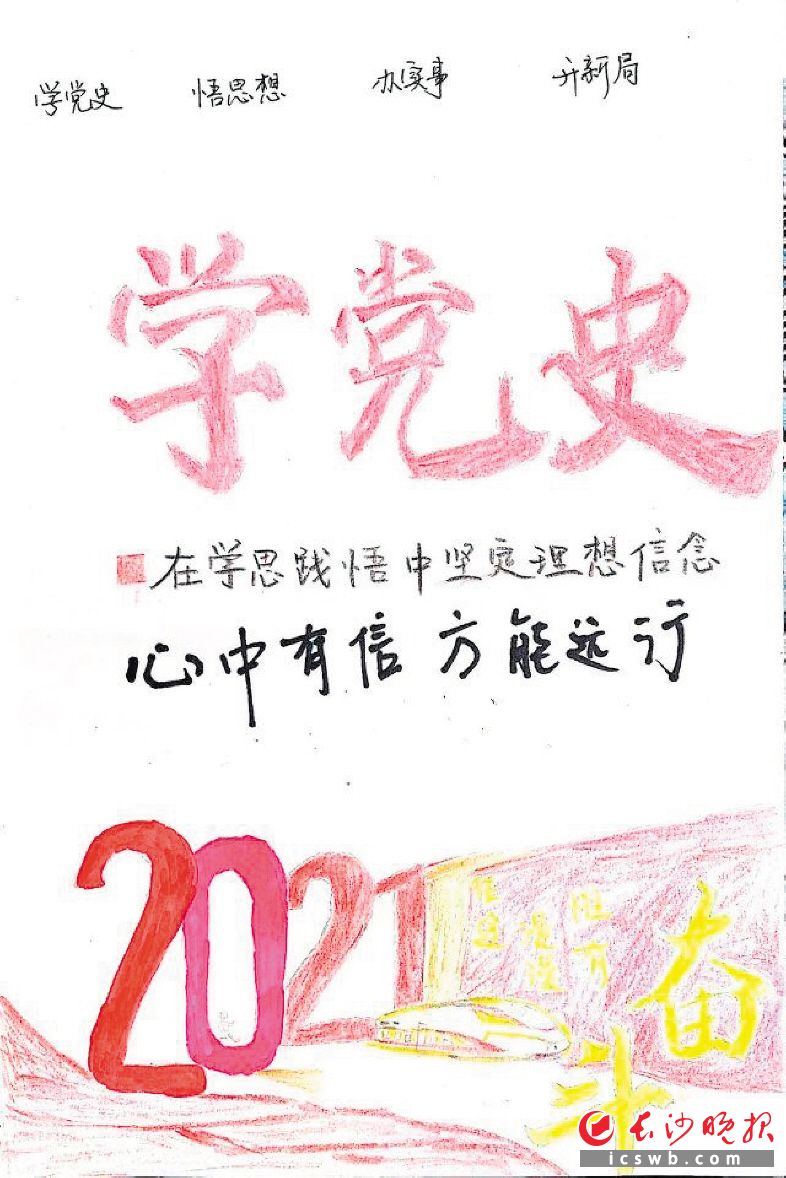 学党史 悟思想 办实事 开新局
学党史
在学思践悟中坚定理想信念
心中有信 方能远行
2021
奋
斗
长沙晚报
icswb.com